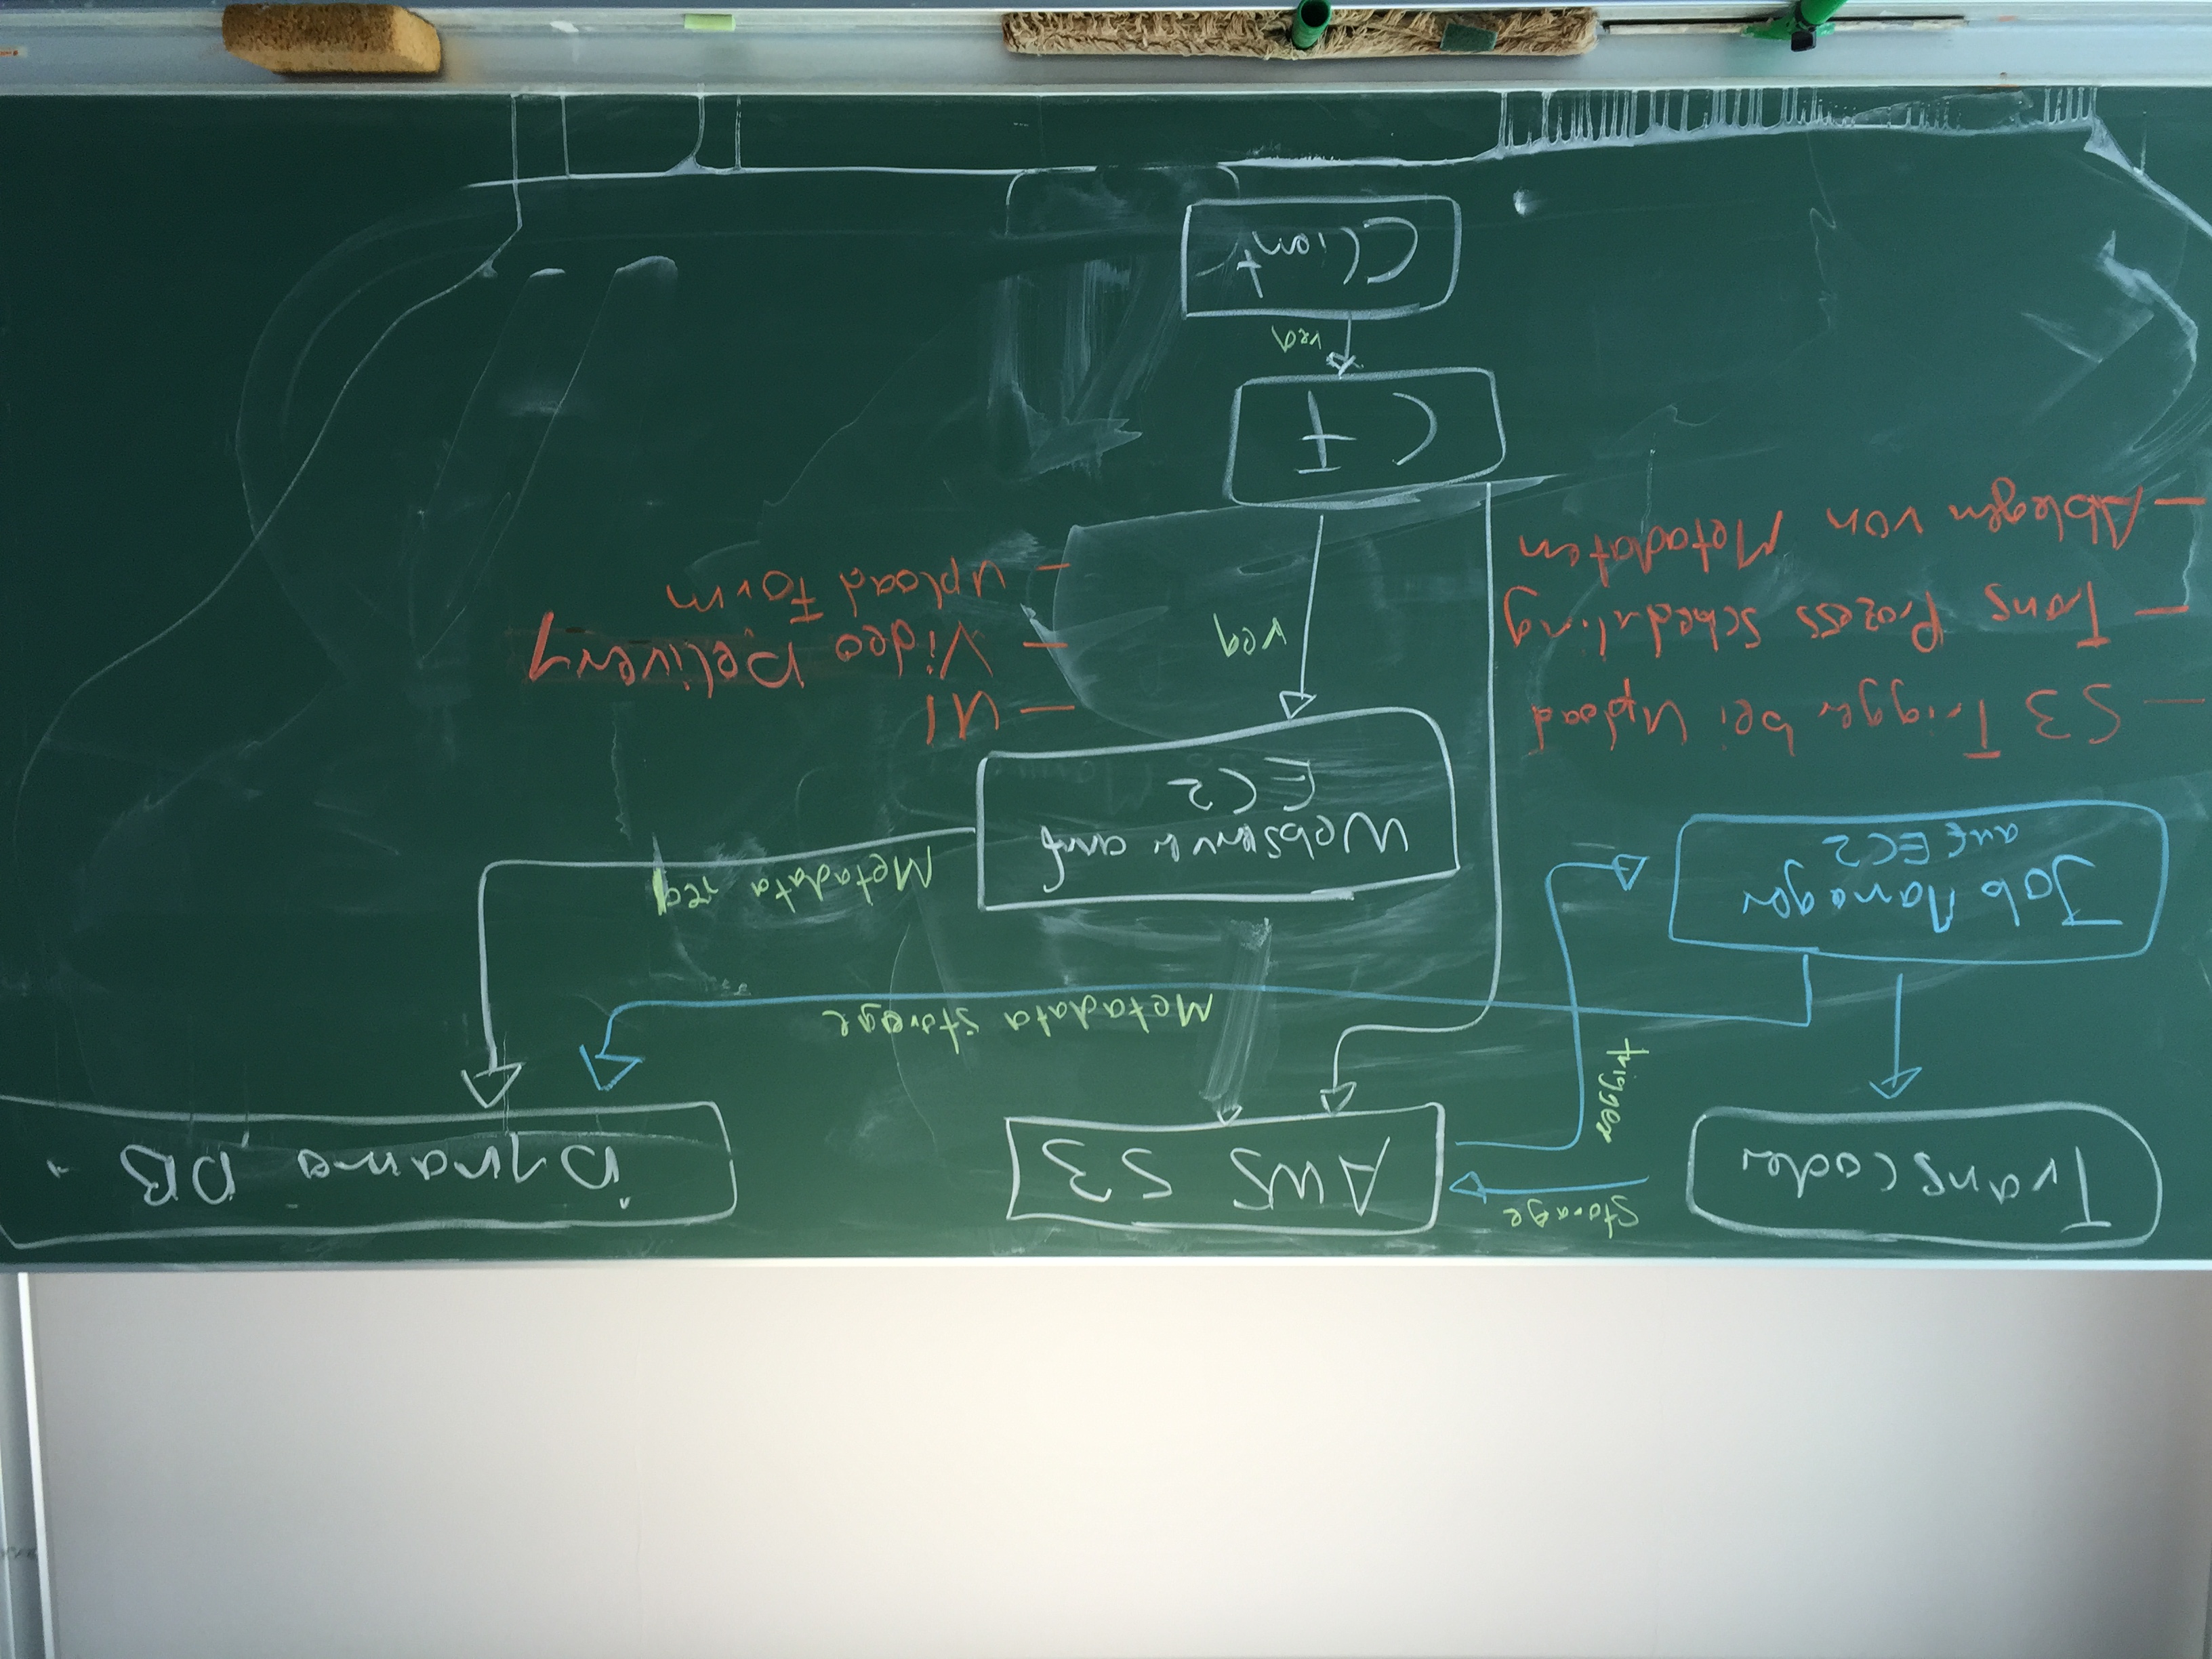 Transcoder
storage
AWS S3
Dynamo DB
trigger
Metadata storage
Job Manager
auf EC2
Webserver auf
EC2
Metadata req
- S3 Trigger bei Upload
- Trans Prozess Scheduling
- Ablegen von Metadaten
- UI
- Video Delivery
- Upload Form
req
CF
req
Client